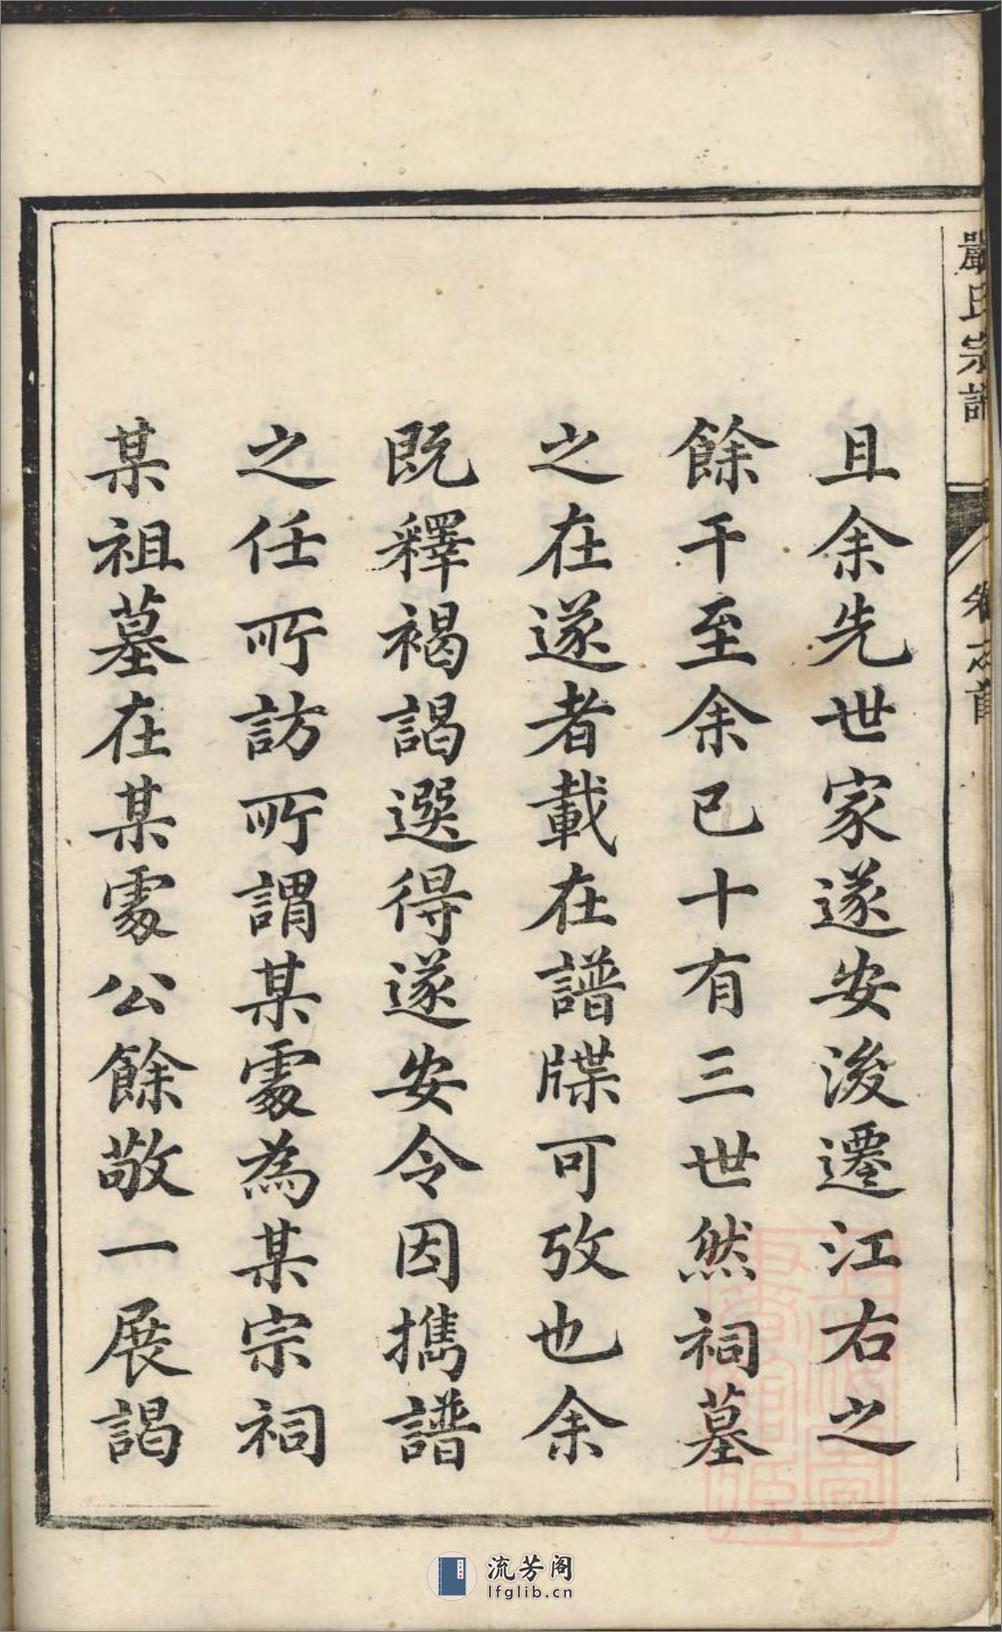 嚴氏宗譜
卷之首
且余先世家遂安後遷江右之
餘干至余已十有三世然祠墓
之在遂者載在譜牒可攷也余
既釋褐謁選得遂安令因攜譜
之任所訪所謂某處為某宗祠
某祖墓在某處公餘敬一展謁
流芳阁
lfglib.cn